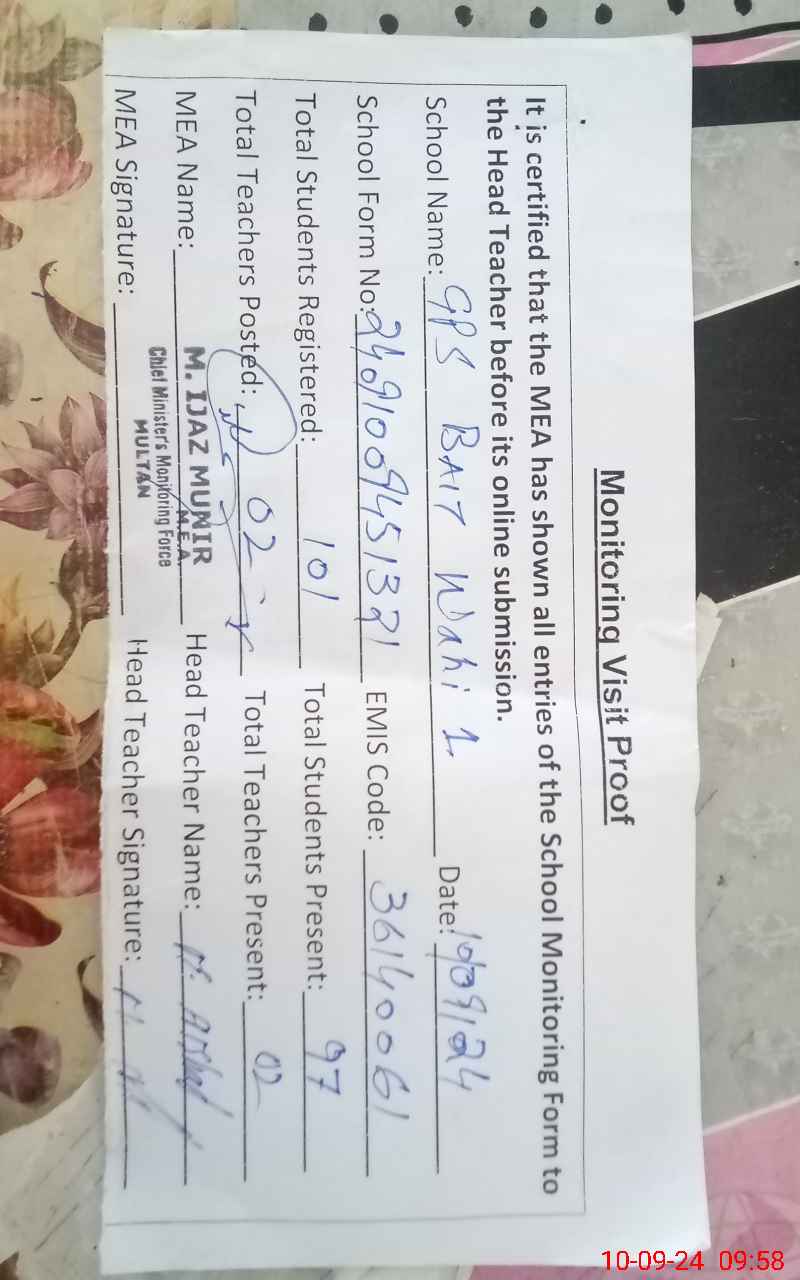 Monitoring Visit Proof
It is certified that the MEA has shown all entries of the School Monitoring Form to
the Head Teacher before its online submission.
School Name: GPS BAIT Wahi 1. Date: 10/09/24
School Form No: EMIS Code: 36140061
Total Students Registered: 101 Total Students Present: 97
Total Teachers Posted: 02 Total Teachers Present: 02
MEA Name: M. IJAZ MUNIR Head Teacher Name: M. Arshad
M.E.A.
Chief Minister's Monitoring Force
MULTAN
MEA Signature: Head Teacher Signature:
10-09-24 09:58